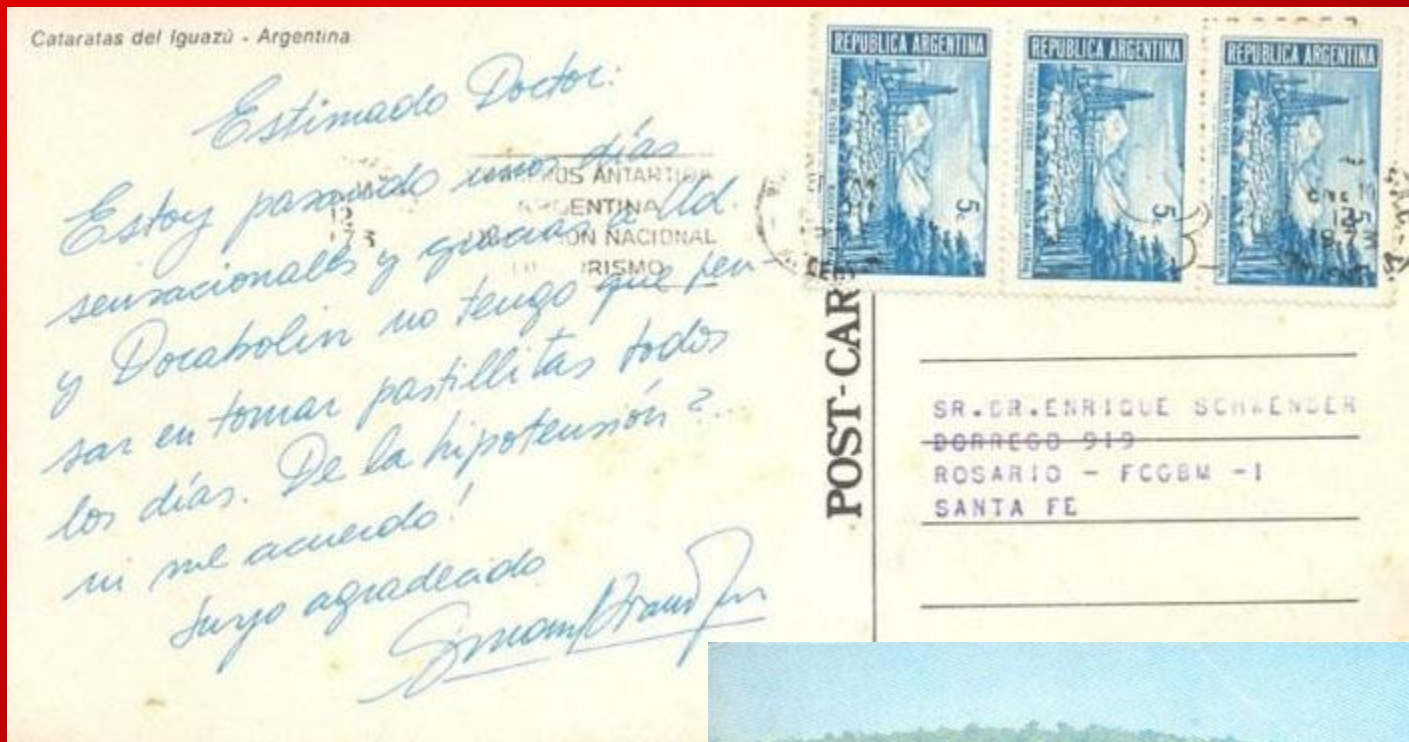 Cataratas del Iguazú - Argentina
Estimado Doctor:
Estoy pasando unos días
sensacionales y gracias a Ud.
y Docabolin no tengo que pen-
sar en tomar pastillitas todos
los días. De la hipotensión?..
ni me acuerdo!
Suyo agradecido
ANTARTIDA
ARGENTINA
NACIONAL
REPUBLICA ARGENTINA
5c
REPUBLICA ARGENTINA
5c
REPUBLICA ARGENTINA
5c
POST-CAR
SR.DR.ENRIQUE SCHWENDER
DORREGO 919
ROSARIO - FCGBM -1
SANTA FE